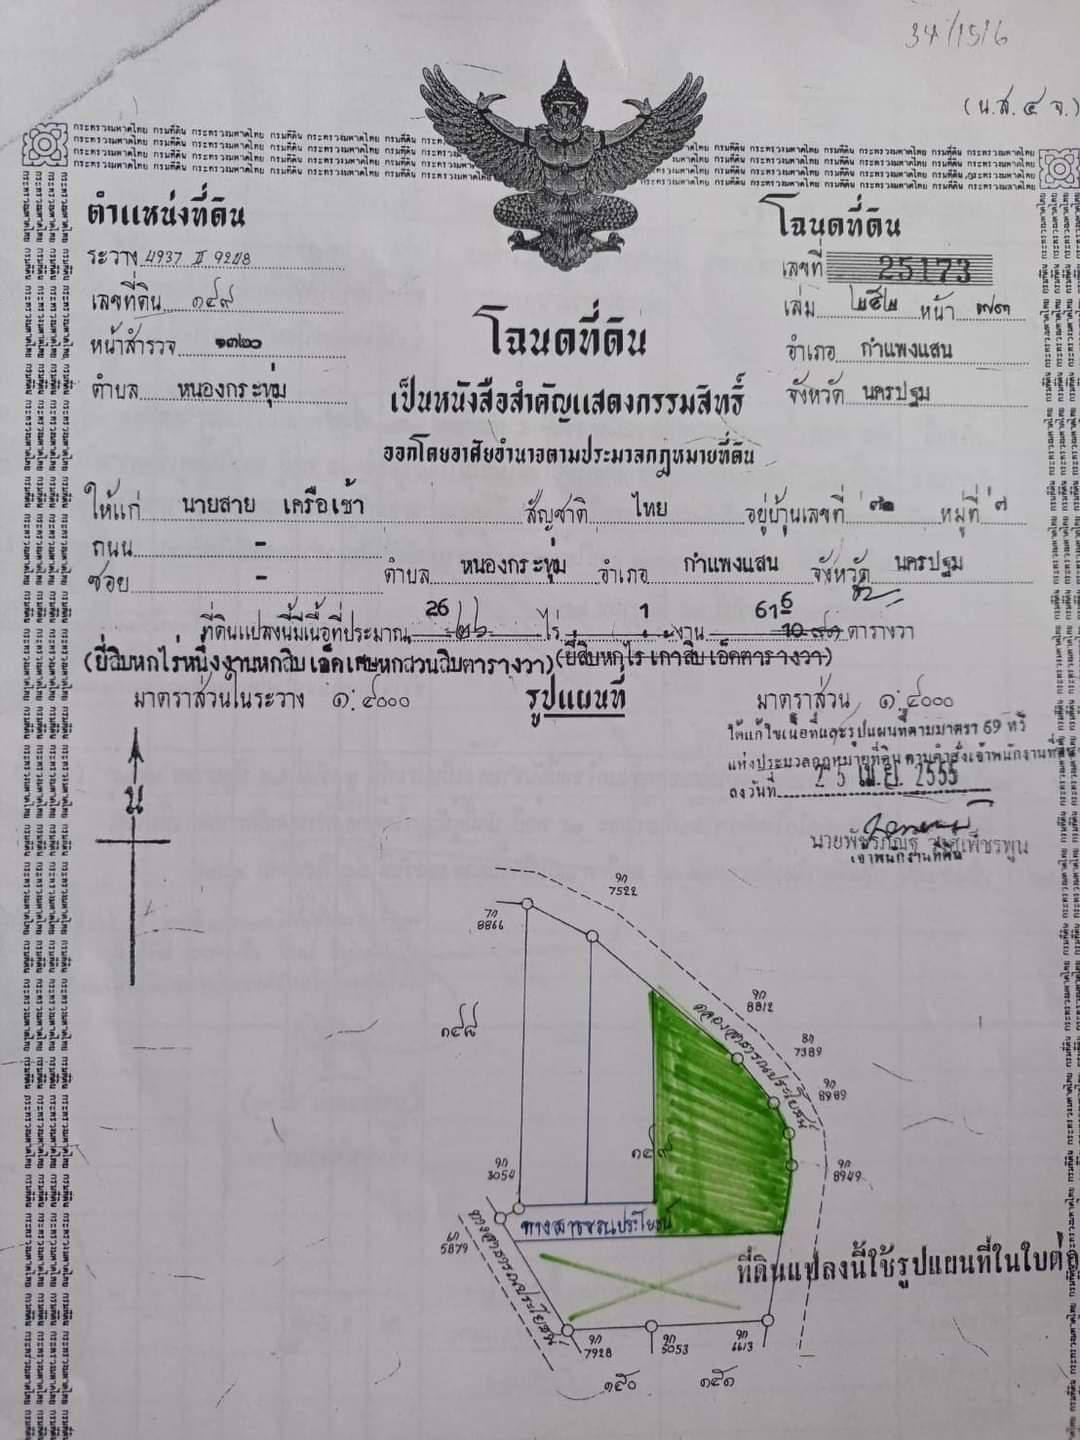 34/1516
(น.ส. ๔ จ.)
กระทรวงมหาดไทย กรมที่ดิน กระทรวงมหาดไทย กรมที่ดิน กระทรวงมหาดไทย กรมที่ดิน
ตำแหน่งที่ดิน
ระวาง 4937 II 9248
เลขที่ดิน ๑๔๙
หน้าสำรวจ ๑๓๒๐
ตำบล หนองกระทุ่ม
โฉนดที่ดิน
เลขที่ 25173
เล่ม ๒๕๒ หน้า ๗๓
อำเภอ กำแพงแสน
จังหวัด นครปฐม
โฉนดที่ดิน
เป็นหนังสือสำคัญแสดงกรรมสิทธิ์
ออกโดยอาศัยอำนาจตามประมวลกฎหมายที่ดิน
ให้แก่ นายสาย เครือเช้า สัญชาติ ไทย อยู่บ้านเลขที่ ๗๑ หมู่ที่ ๗
ถนน -
ซอย - ตำบล หนองกระทุ่ม อำเภอ กำแพงแสน จังหวัด นครปฐม
26 1 61 6/10
ที่ดินแปลงนี้มีเนื้อที่ประมาณ ๒๖ ไร่ - งาน ๙๑ ตารางวา
(ยี่สิบหกไร่หนึ่งงานหกสิบเอ็ดเศษหกส่วนสิบตารางวา) (ยี่สิบหกไร่ เก้าสิบเอ็ดตารางวา)
มาตราส่วนในระวาง ๑:๔๐๐๐ รูปแผนที่ มาตราส่วน ๑:๔๐๐๐
ได้แก้ไขเนื้อที่และรูปแผนที่ตามมาตรา 69 ทวิ
แห่งประมวลกฎหมายที่ดิน ตามคำสั่งเจ้าพนักงานที่ดิน
ลงวันที่ 25 เม.ย. 2555
เจ้าพนักงานที่ดิน
น
ๆก 7522
7ก 8866
ๆก 8812
8ก 7389
ๆก 8989
คลองสาธารณประโยชน์
๑๔๘
๑๔๙
ๆก 3054
ๆก 8949
ทางสาธารณประโยชน์
ทางสาธารณประโยชน์
5879
ที่ดินแปลงนี้ใช้รูปแผนที่ในใบต่อ
ๆก 7928
ๆก 5053
ๆก 6613
๑๕๐
๑๕๑